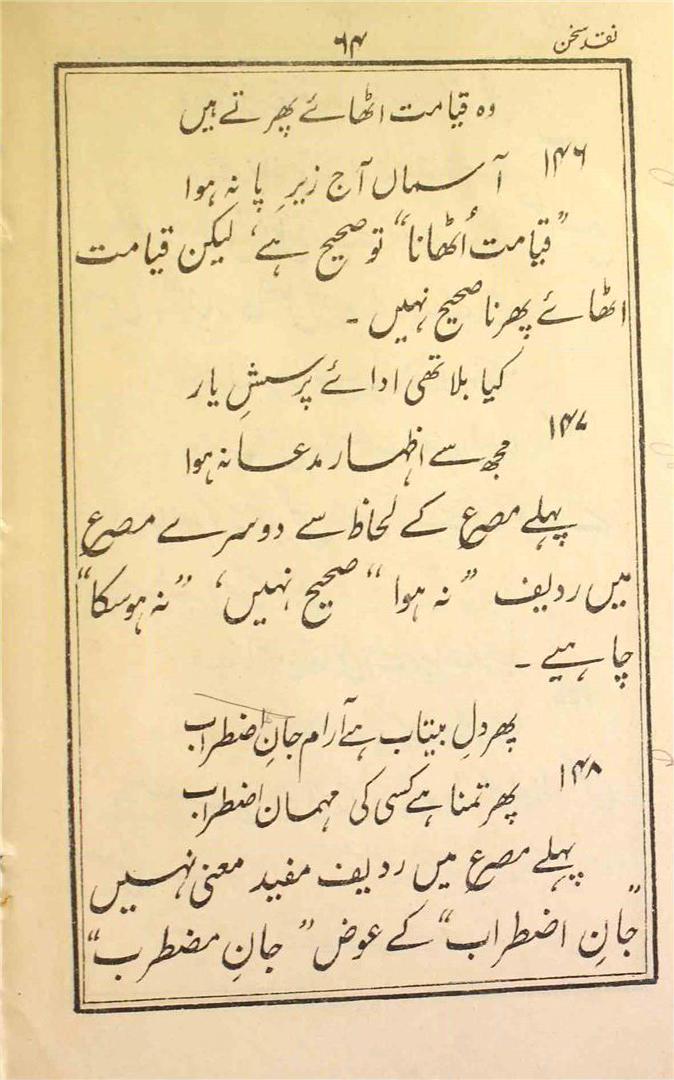 نقد سخن
۶۴
وہ قیامت اٹھائے پھرتے ہیں
۱۴۶
آسماں آج زیرِ پا نہ ہوا
”قیامت اُٹھانا“ تو صحیح ہے، لیکن قیامت
اٹھائے پھرنا صحیح نہیں ۔
کیا بلا تھی ادائے پرسشِ یار
۱۴۷
مجھ سے اظہار مدعا نہ ہوا
پہلے مصرع کے لحاظ سے دوسرے مصرع
میں ردیف ”نہ ہوا“ صحیح نہیں، ”نہ ہوسکا“
چاہیے ۔
پھر دلِ بیتاب ہے آرام جانِ اضطراب
۱۴۸
پھر تمنا ہے کسی کی مہمان اضطراب
پہلے مصرع میں ردیف مفید معنی نہیں
”جانِ اضطراب“ کے عوض ”جانِ مضطرب“